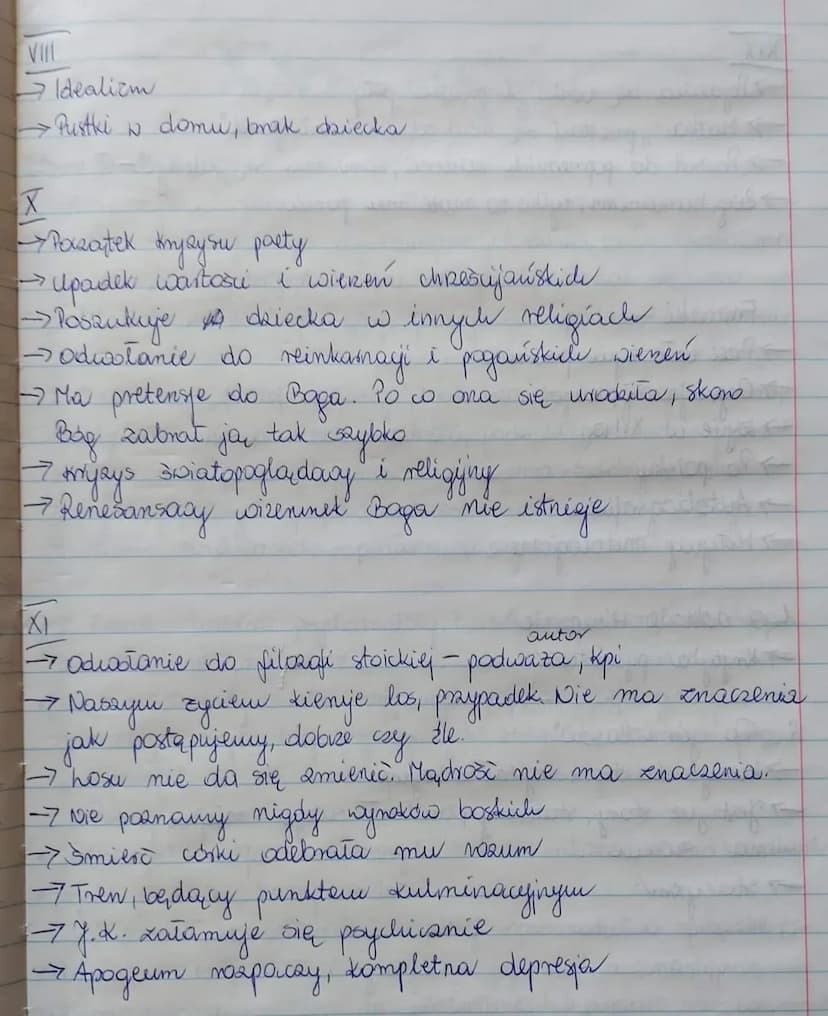 VIII
→ Idealizm
→ Pustki w domu, brak dziecka
X
→ Początek kryzysu poety
→ Upadek wartości i wierzeń chrześcijańskich
→ Poszukuje dziecka w innych religiach
→ Odwołanie do reinkarnacji i pogańskich wierzeń
→ Ma pretensje do Boga. Po co ona się urodziła, skoro
Bóg zabrał ją tak szybko
→ Kryzys światopoglądacy i religijny
→ Renesansacy wizerunek Boga nie istnieje
XI
autor
→ Odwołanie do filozofi stoickiej – podważa, kpi
→ Naszym życiem kieruje los, przypadek. Nie ma znaczenia
jak postąpujemy, dobrze czy źle.
→ Losu nie da się zmienić. Mądrość nie ma znaczenia.
→ Nie poznamy nigdy wyroków boskich
→ Śmierć córki odebrała mu rozum
→ Tren, będący punktem kulminacyjnym
→ J.K. załamuje się psychicznie
→ Apogeum rozpaczy, kompletna depresja